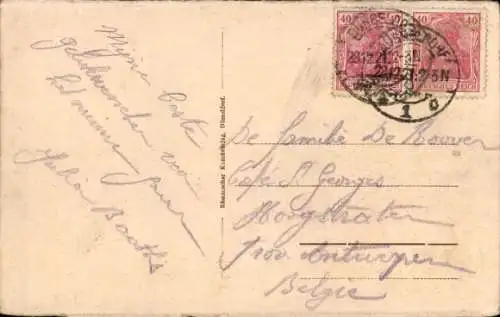 Mijne beste
gelukwenschen voor
het nieuwe jaar
Julia Baaths
Rheinischer Kunstverlag, Düsseldorf.
40 40
DÜSSELDORF
1
De Familie De Roover
Cafe St Georges
Hoogstraten
Prov. Antwerpen
Belgie